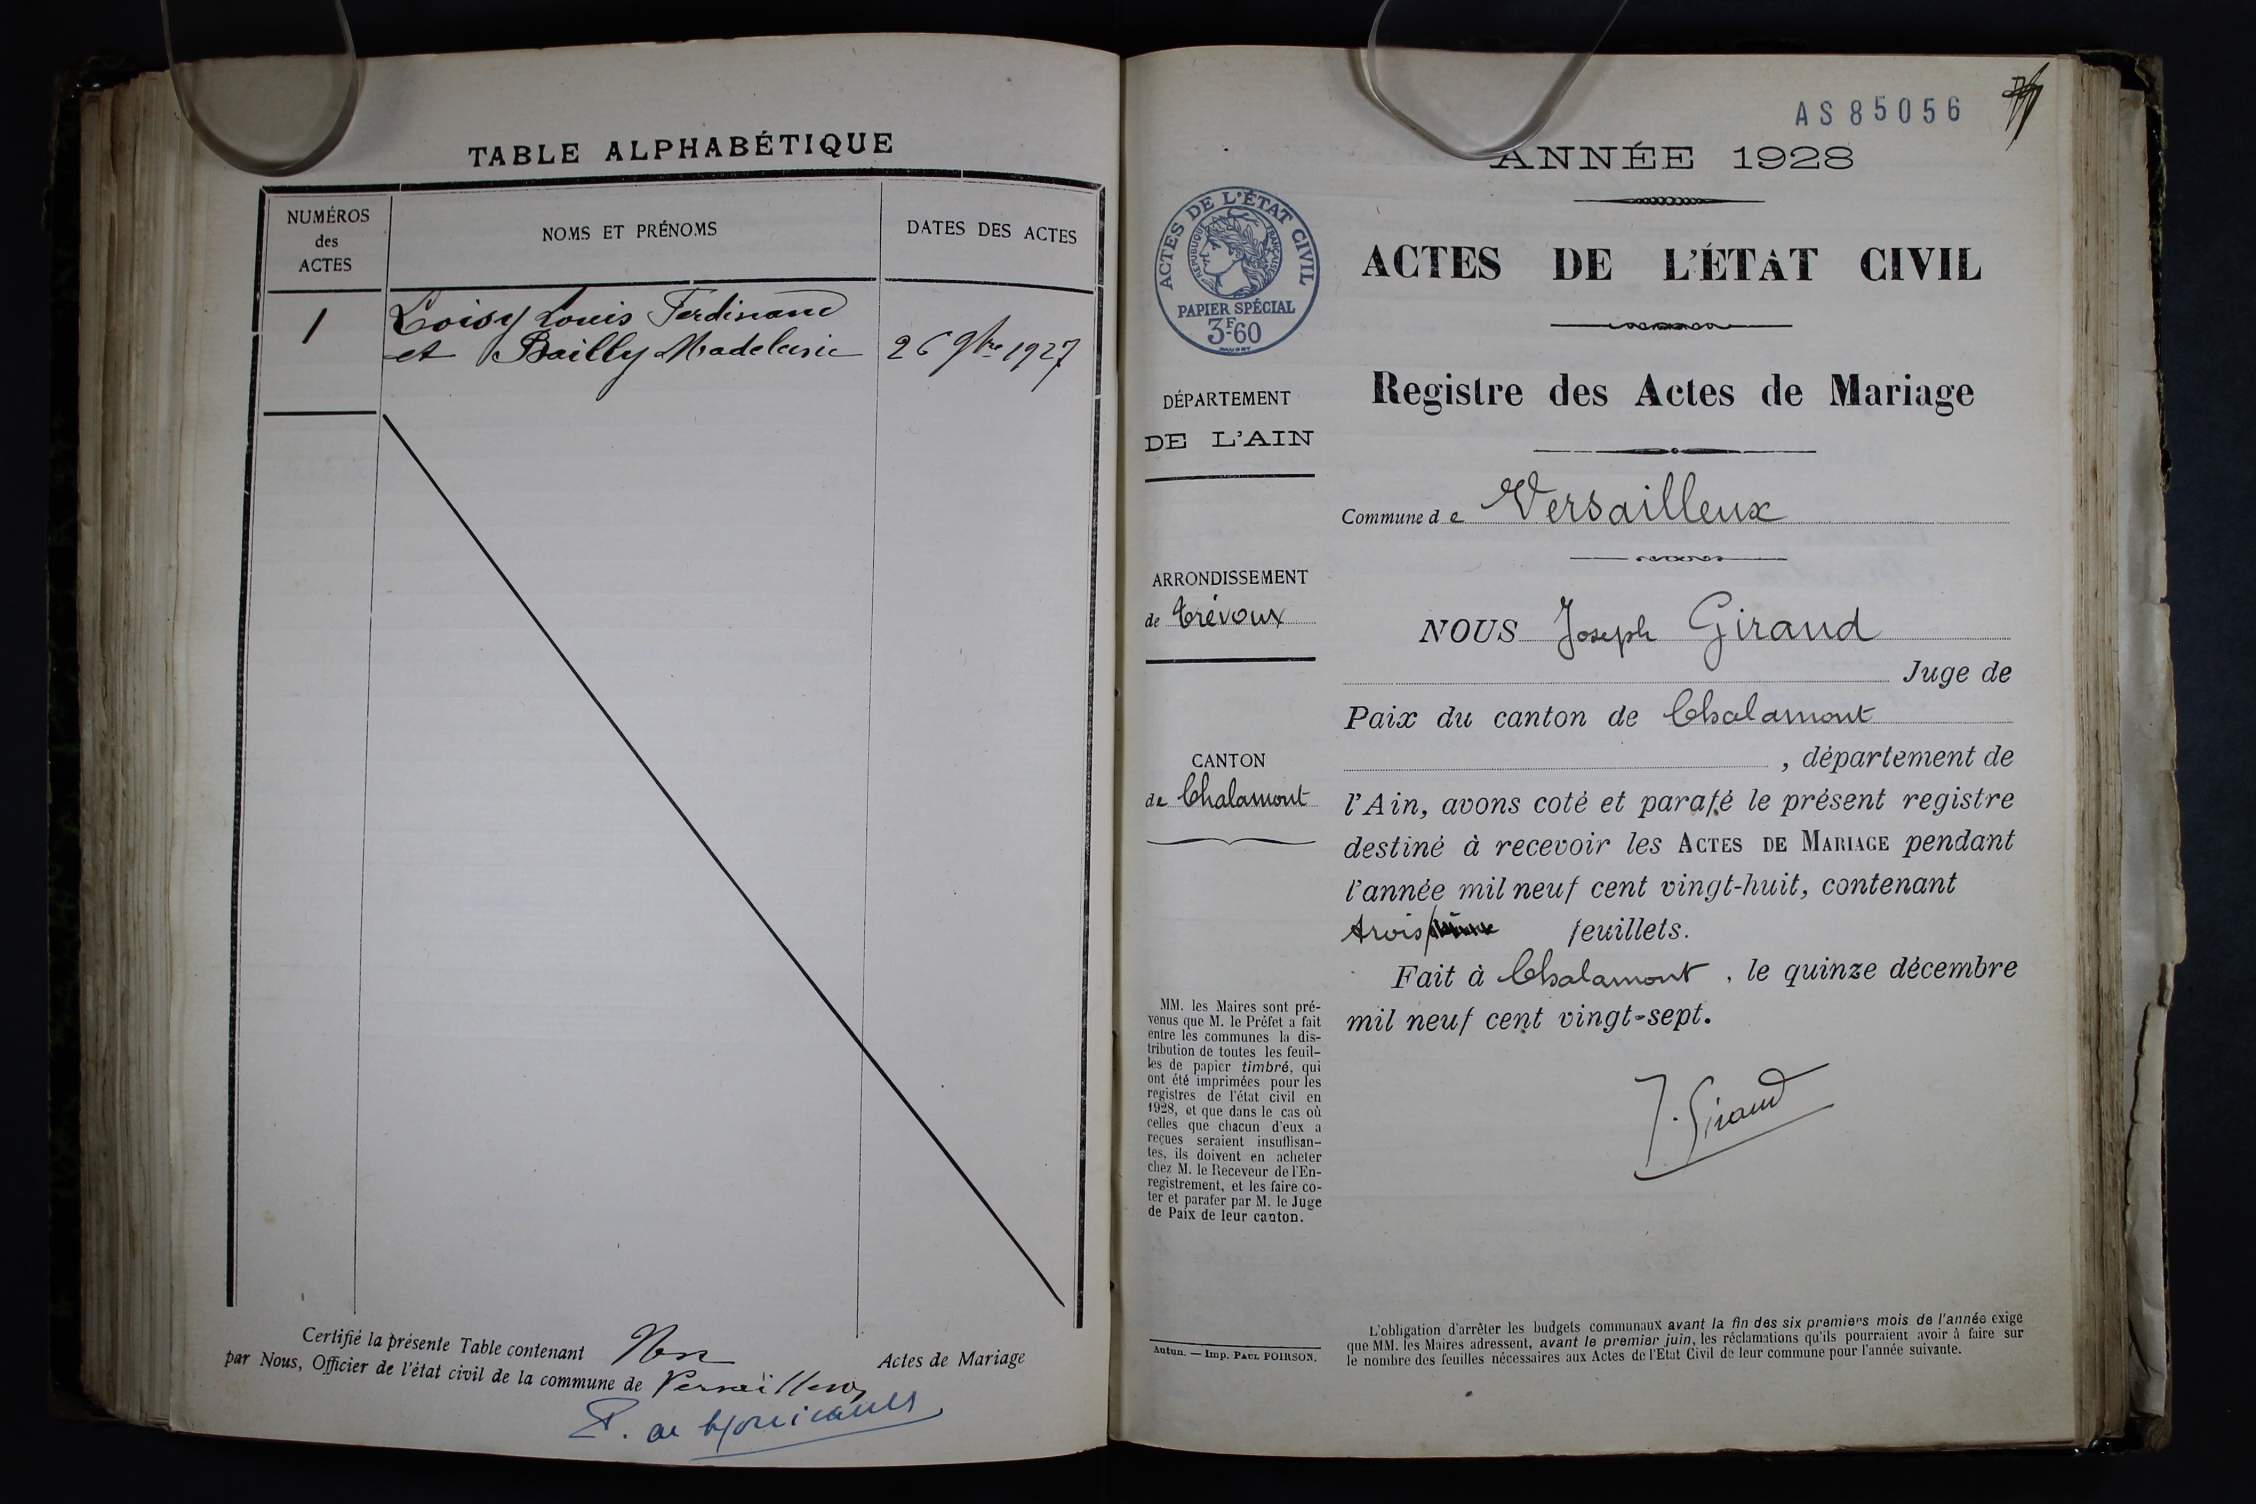 TABLE ALPHABÉTIQUE
NUMÉROS
des
ACTES
NOMS ET PRÉNOMS
DATES DES ACTES
1
Loisy Louis Ferdinand
et Bailly Madeleine
26 9bre 1927
Certifié la présente Table contenant
Actes de Mariage
par Nous, Officier de l'état civil de la commune de Versailleux
AS85056
ANNÉE 1928
ACTES DE L'ÉTAT CIVIL
RÉPUBLIQUE FRANÇAISE
PAPIER SPÉCIAL
3F60
ACTES DE L'ÉTAT CIVIL
Registre des Actes de Mariage
DÉPARTEMENT
DE L'AIN
Commune de Versailleux
ARRONDISSEMENT
de Trévoux
CANTON
de Chalamont
NOUS Joseph Giraud
Juge de
Paix du canton de Chalamont
, département de
l'Ain, avons coté et parafé le présent registre
destiné à recevoir les ACTES DE MARIAGE pendant
l'année mil neuf cent vingt-huit, contenant
trois feuillets.
Fait à Chalamont, le quinze décembre
mil neuf cent vingt-sept.
J. Giraud
MM. les Maires sont pré-
venus que M. le Préfet a fait
entre les communes la dis-
tribution de toutes les feuil-
les de papier timbré, qui
ont été imprimées pour les
registres de l'état civil en
1928, et que dans le cas où
celles que chacun d'eux a
reçues seraient insuffisan-
tes, ils doivent en acheter
chez M. le Receveur de l'En-
registrement, et les faire co-
ter et parafer par M. le Juge
de Paix de leur canton.
Autun. — Imp. PAUL POIRSON.
L'obligation d'arrêter les budgets communaux avant la fin des six premiers mois de l'année exige
que MM. les Maires adressent, avant le premier juin, les réclamations qu'ils pourraient avoir à faire sur
le nombre des feuilles nécessaires aux Actes de l'Etat Civil de leur commune pour l'année suivante.